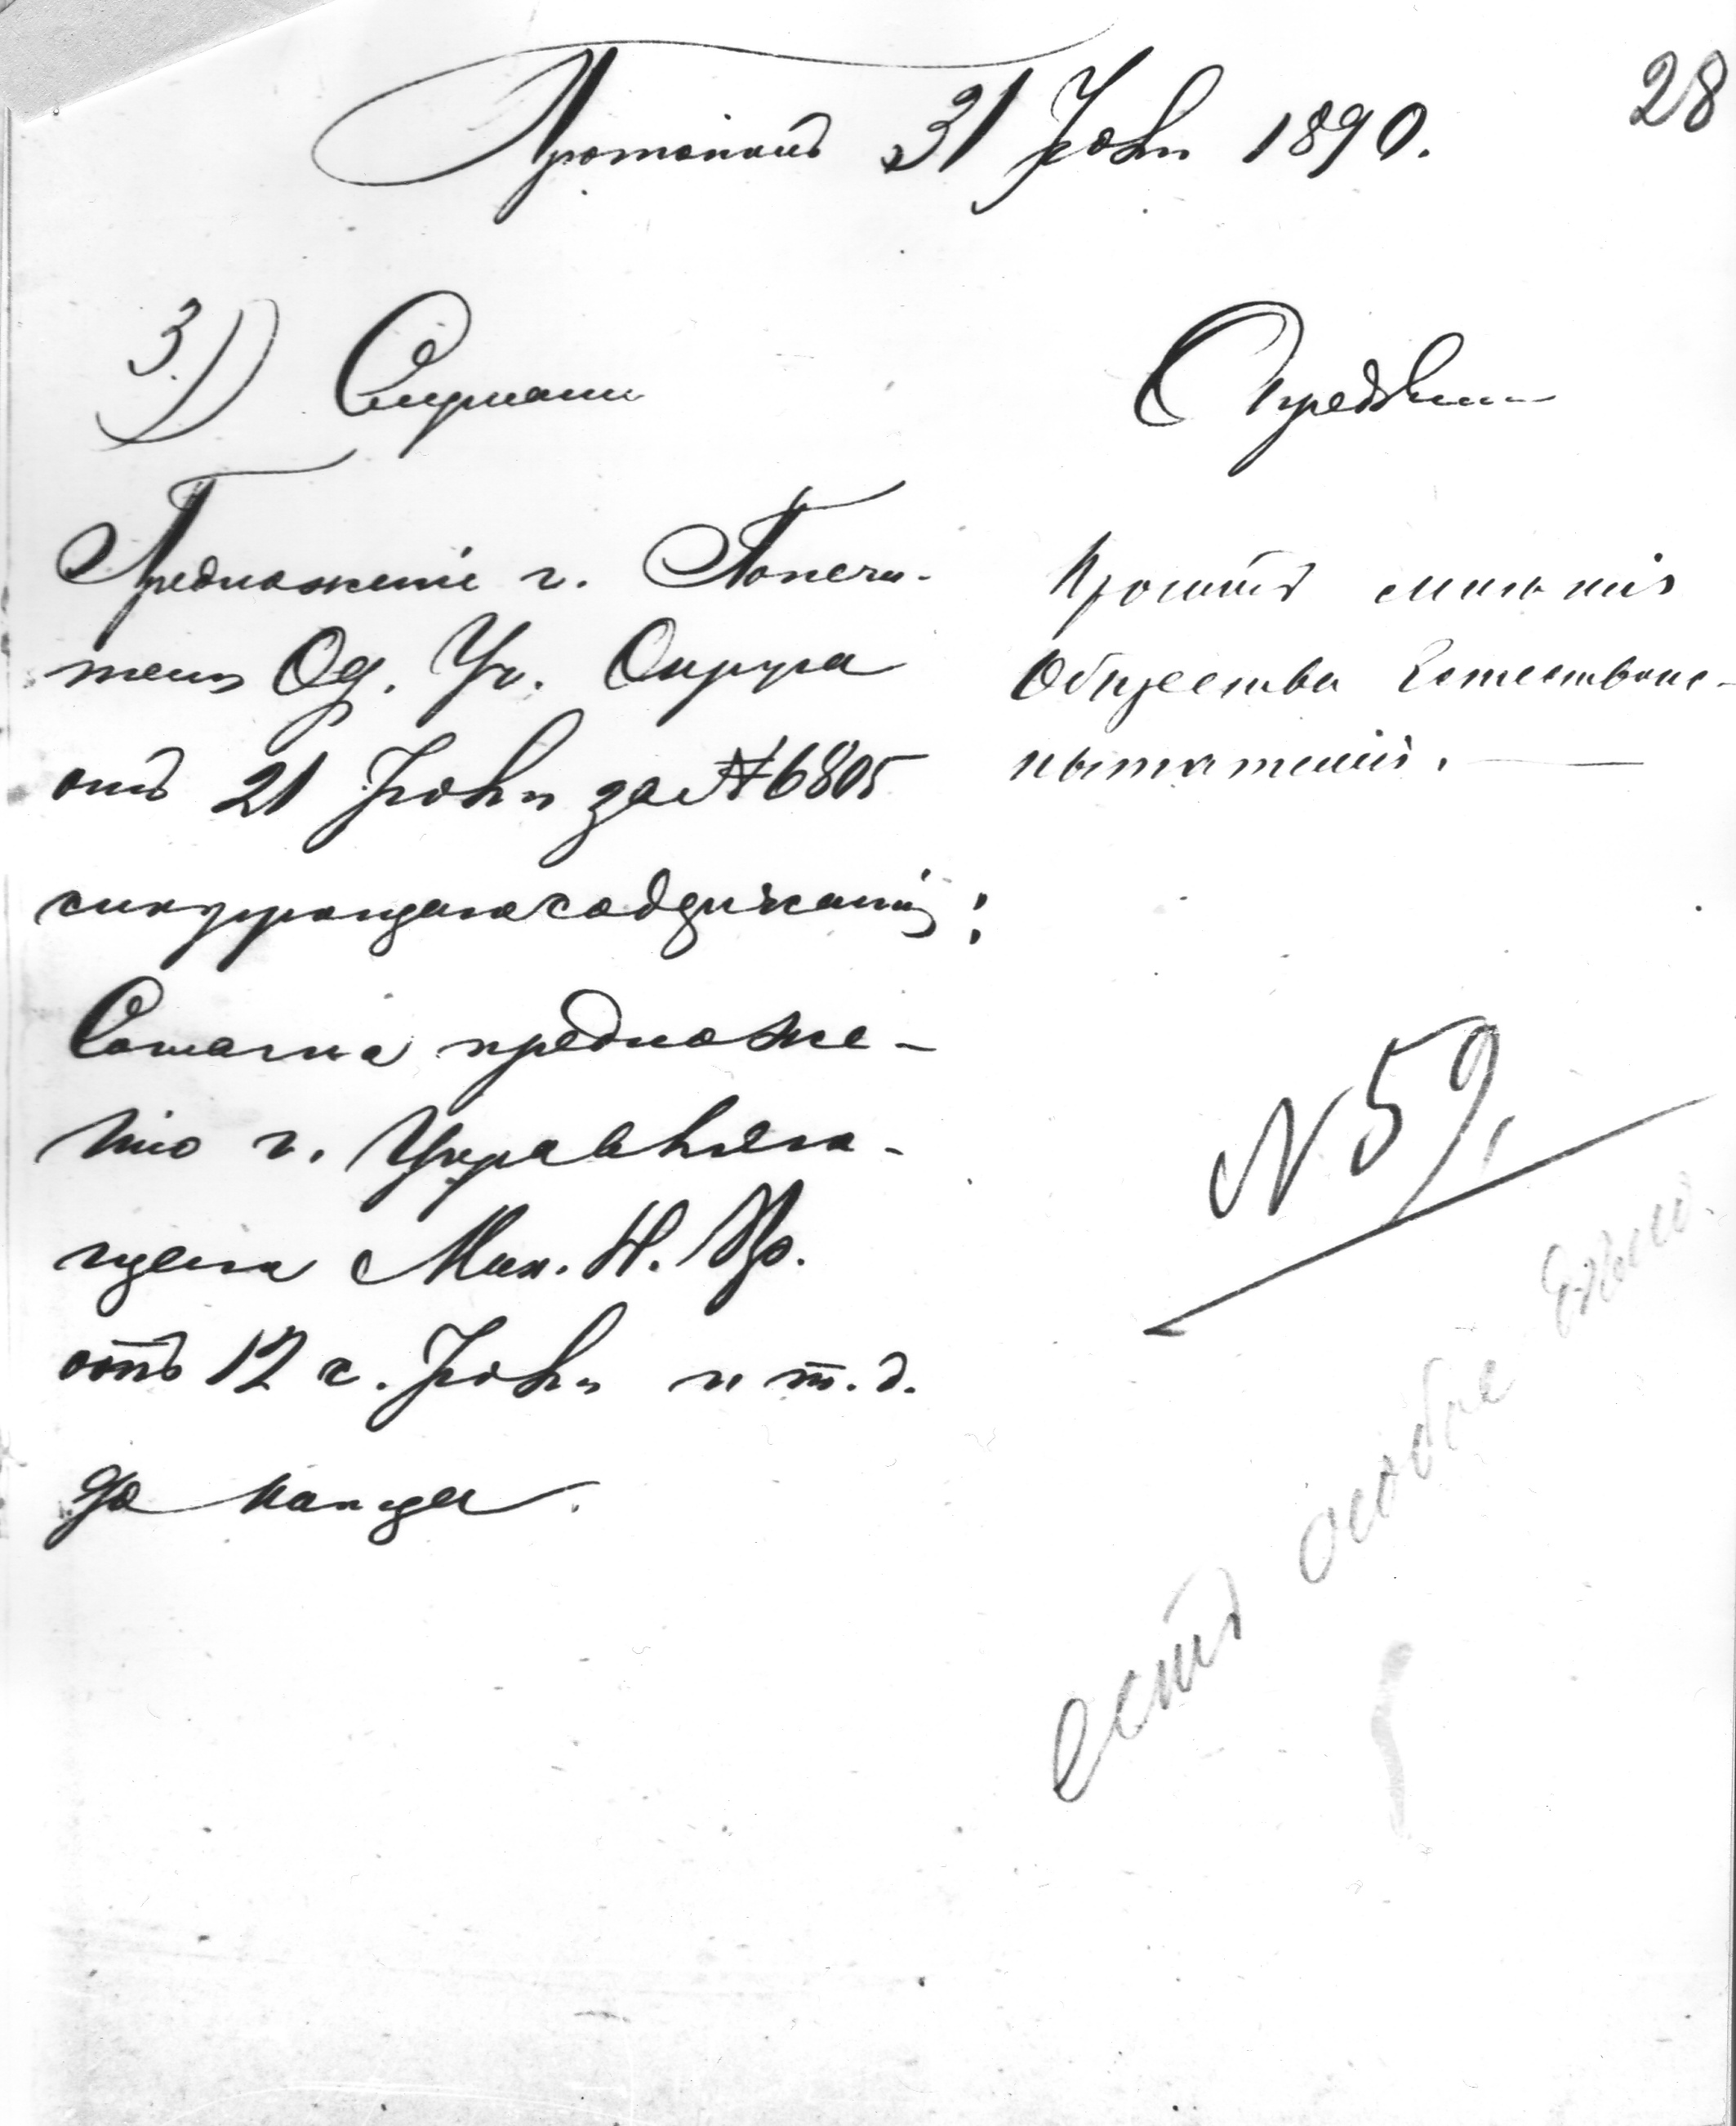 28
Протоколъ 31 Іюля 1890.
3) Слушали
Предложеніе г. Попечи-
теля Од. Уч. Округа
отъ 21 Іюля за № 6805
слѣдующаго содержанія:
Согласно предложе-
нію г. Управляю-
щаго Мин. Н. Пр.
отъ 12 с. Іюля и т. д.
до конца.
Опредѣлили
Просить мнѣнія
Общества Естествоис-
пытателей.
N 59,
есть особое